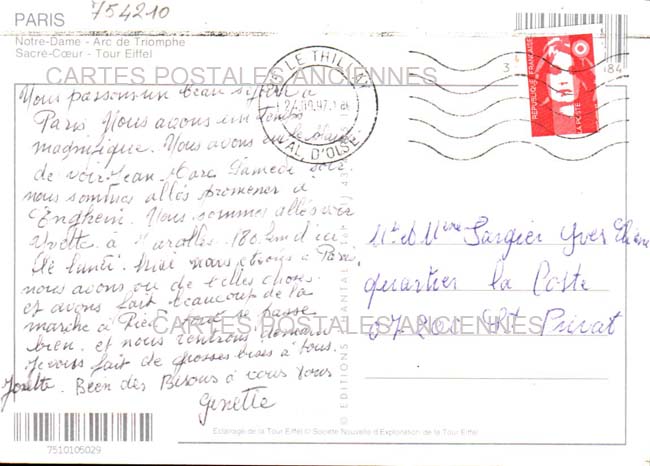 754210
PARIS
Notre-Dame - Arc de Triomphe
Sacré-Cœur - Tour Eiffel
CARTES POSTALES ANCIENNES
95 LE THILLAY
VAL D'OISE
RÉPUBLIQUE FRANÇAISE
LA POSTE
Vous passons un beau séjour à
Paris. Nous avons un temps
magnifique. Nous avons eu le plaisir
de voir Jean Marc Samedi soir
nous sommes allés promener à
Enghein. Nous sommes allés voir
Yvette à Marolles 180 km d'ici
lundi. Midi nous étions à Paris
nous avons vu de belles choses
et avons fait beaucoup de la
marche à Pied. tout se passe
bien. et nous rentrons demain
Je vous fait de grosses bises à tous.
Josette. Been des Bisous à vous tous
Ginette
Mr et Mme Sargier Yves
quartier la Poste
07200 St Privat
CARTES POSTALES ANCIENNES
© EDITIONS CHANTAL
Eclairage de la Tour Eiffel © Société Nouvelle d'Exploration de la Tour Eiffel
7510105029